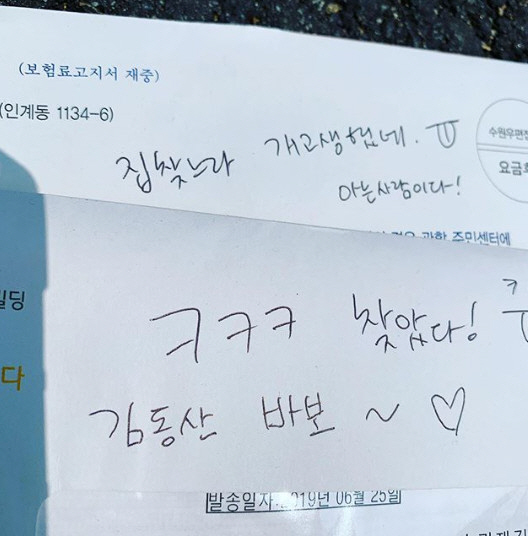 (보험료고지서 재중)
(인계동 1134-6)
집찾느라 개고생했네. ㅠ
아는사람이다!
수원우편
요금
주민센터에
딩
다
ㅋㅋㅋ 찾았다! ㅋ
김동산 바보 ~ ♡
발송일자 2019년 06월 25일